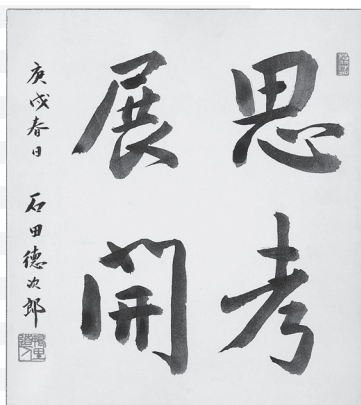 思考
展開
庚戌春日 石田德次郎